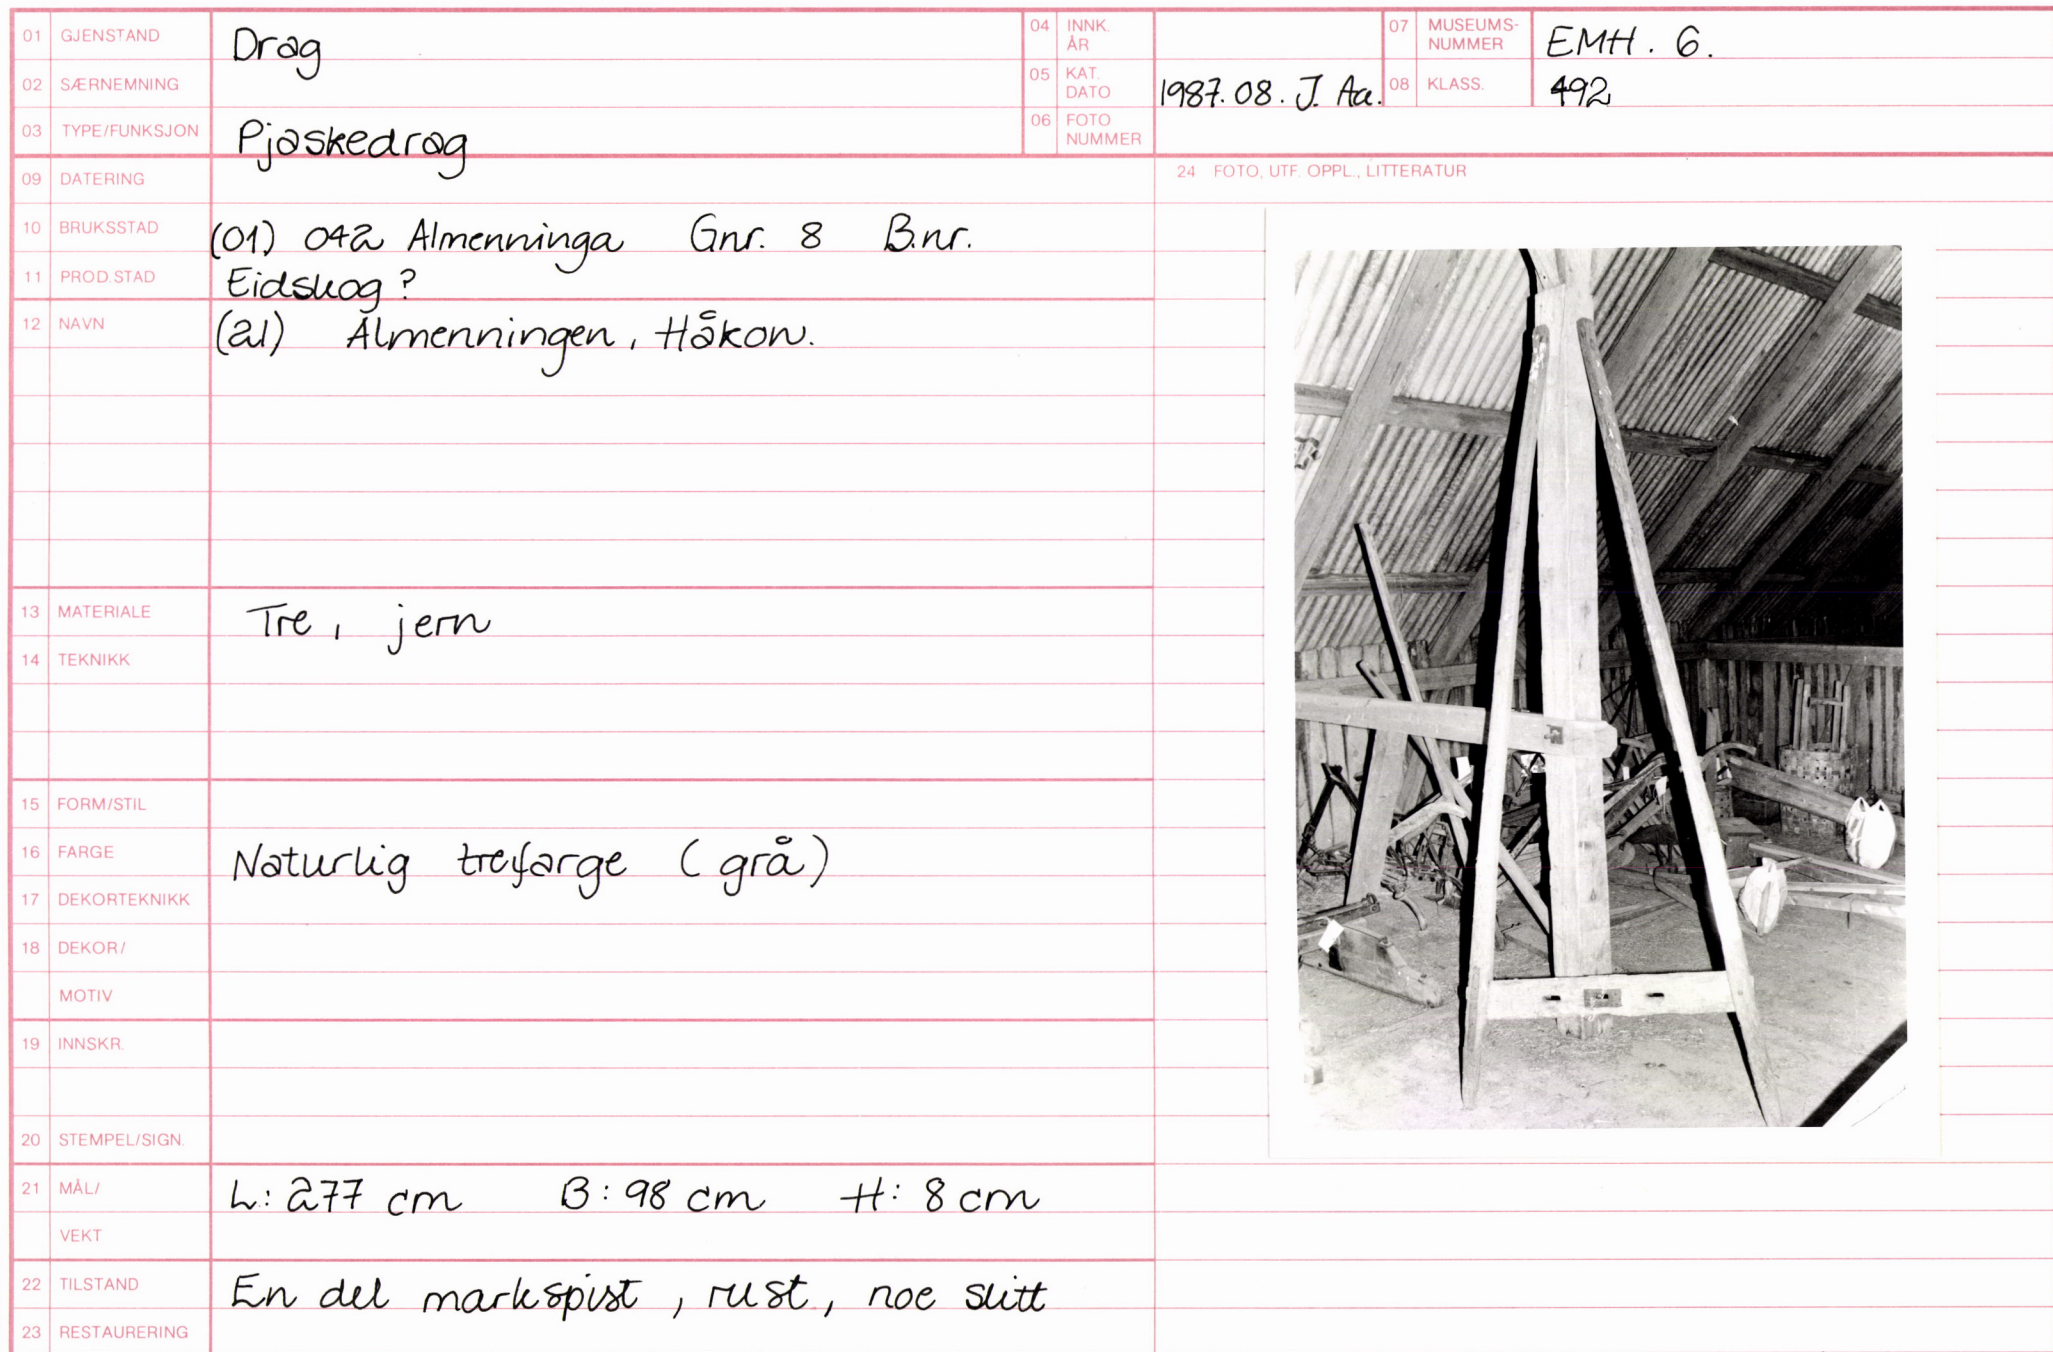 01 GJENSTAND Drag
02 SÆRNEMNING
03 TYPE/FUNKSJON Pjaskedrag
04 INNK. ÅR
05 KAT. DATO 1987.08. J. Aa.
06 FOTO NUMMER
07 MUSEUMS-NUMMER EMH. 6.
08 KLASS. 492
09 DATERING
10 BRUKSSTAD (01) 042 Almenninga Gnr. 8 B.nr.
11 PROD.STAD Eidskog?
12 NAVN (21) Almenningen, Håkon.
13 MATERIALE Tre, jern
14 TEKNIKK
15 FORM/STIL
16 FARGE Naturlig trefarge (grå)
17 DEKORTEKNIKK
18 DEKOR/
MOTIV
19 INNSKR.
20 STEMPEL/SIGN.
21 MÅL/ L: 277 cm B: 98 cm H: 8 cm
VEKT
22 TILSTAND En del markspist, rust, noe slitt
23 RESTAURERING
24 FOTO, UTF. OPPL., LITTERATUR